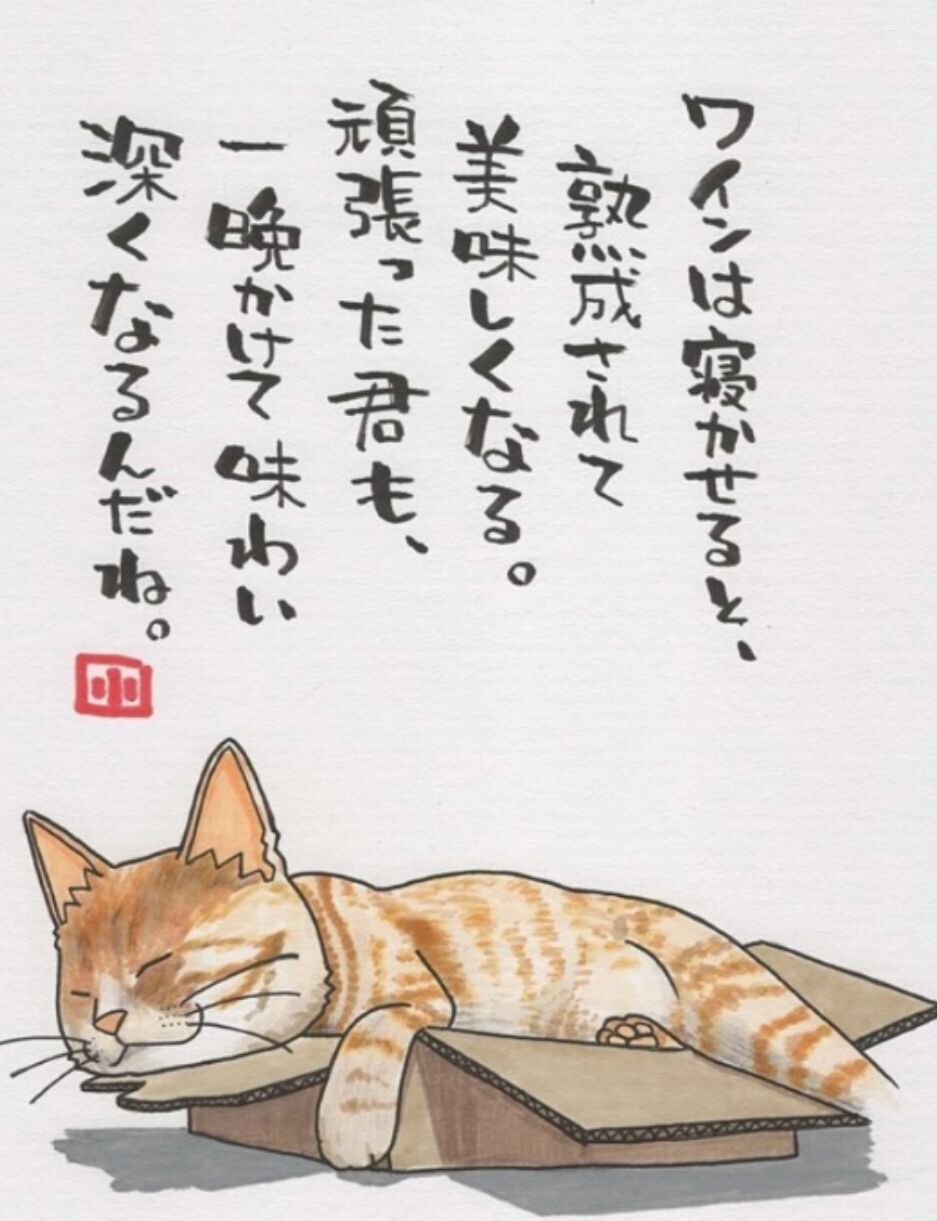 ワインは寝かせると、
熟成されて
美味しくなる。
頑張った君も、
一晩かけて味わい
深くなるんだね。